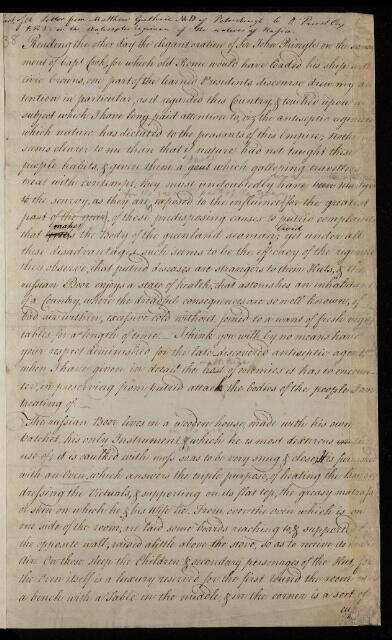 of a Letter from Matthew Guthrie M.D of Petersburgh to
F.R.S. on the Antiseptic regimen of the natives of Russia.
38
Reading the other day the elegant oration of Sir John Pringle on the
ment of Capt Cook, for which old Rome would have loaded his ship with
civic crowns, one part of the learned Presidents discourse drew my at
tention in particular, as it regarded this Country, & touched upon a
subject which I have long paid attention to, viz the antiseptic regimen
which nature has dictated to the peasants of this Empire; nothing
seems clearer to me than that if nature had not taught these
people habits, & given them a which galloping travellers
treat with contempt, they must undoubtedly have been
to the scurvy, as they are exposed to the influence for the greatest
part of the year, of those predisposing causes to putrid complaints
that makes the Body of the greenland seaman livid; yet under all
these disadvantages such seems to be the efficacy of the regimen
they observe, that putrid diseases are strangers to their Huts, & the
russian Boor enjoys a state of health, that astonishes an inhabitant
of a Country, where the dreadful consequences are so well known, of
bad air within, excessive cold without, joined to a want of fresh vege
tables, for a length of time. I think you will by no means have
your respect diminished for the late discovered antiseptic
when I have given in detail the host of enemies it has to encoun
ter, in preserving from putrid attack the bodies of the people I am
treating of.
The russian Boor lives in a wooden house, made with his own
hatchet, his only Instrument, & which he is most dexterous in the
use of; it is caulked with moss so as to be very snug & close, It is furnished
with an Oven, which answers the triple purpose, of heating the house,
dressing the Victuals, & supporting on its flat top, the greasy matrass
of skin on which he & his Wife lie. From over the oven which is on
one side of the room, are laid some boards reaching to, & supported
the opposite wall, raised a little above the stove, so as to receive its
On these sleep the Children & secondary personages of the Hut, for
the Oven itself is a luxury reserved for the first. round the room
a bench with a Table in the middle, & in the corner is a sort of
cup